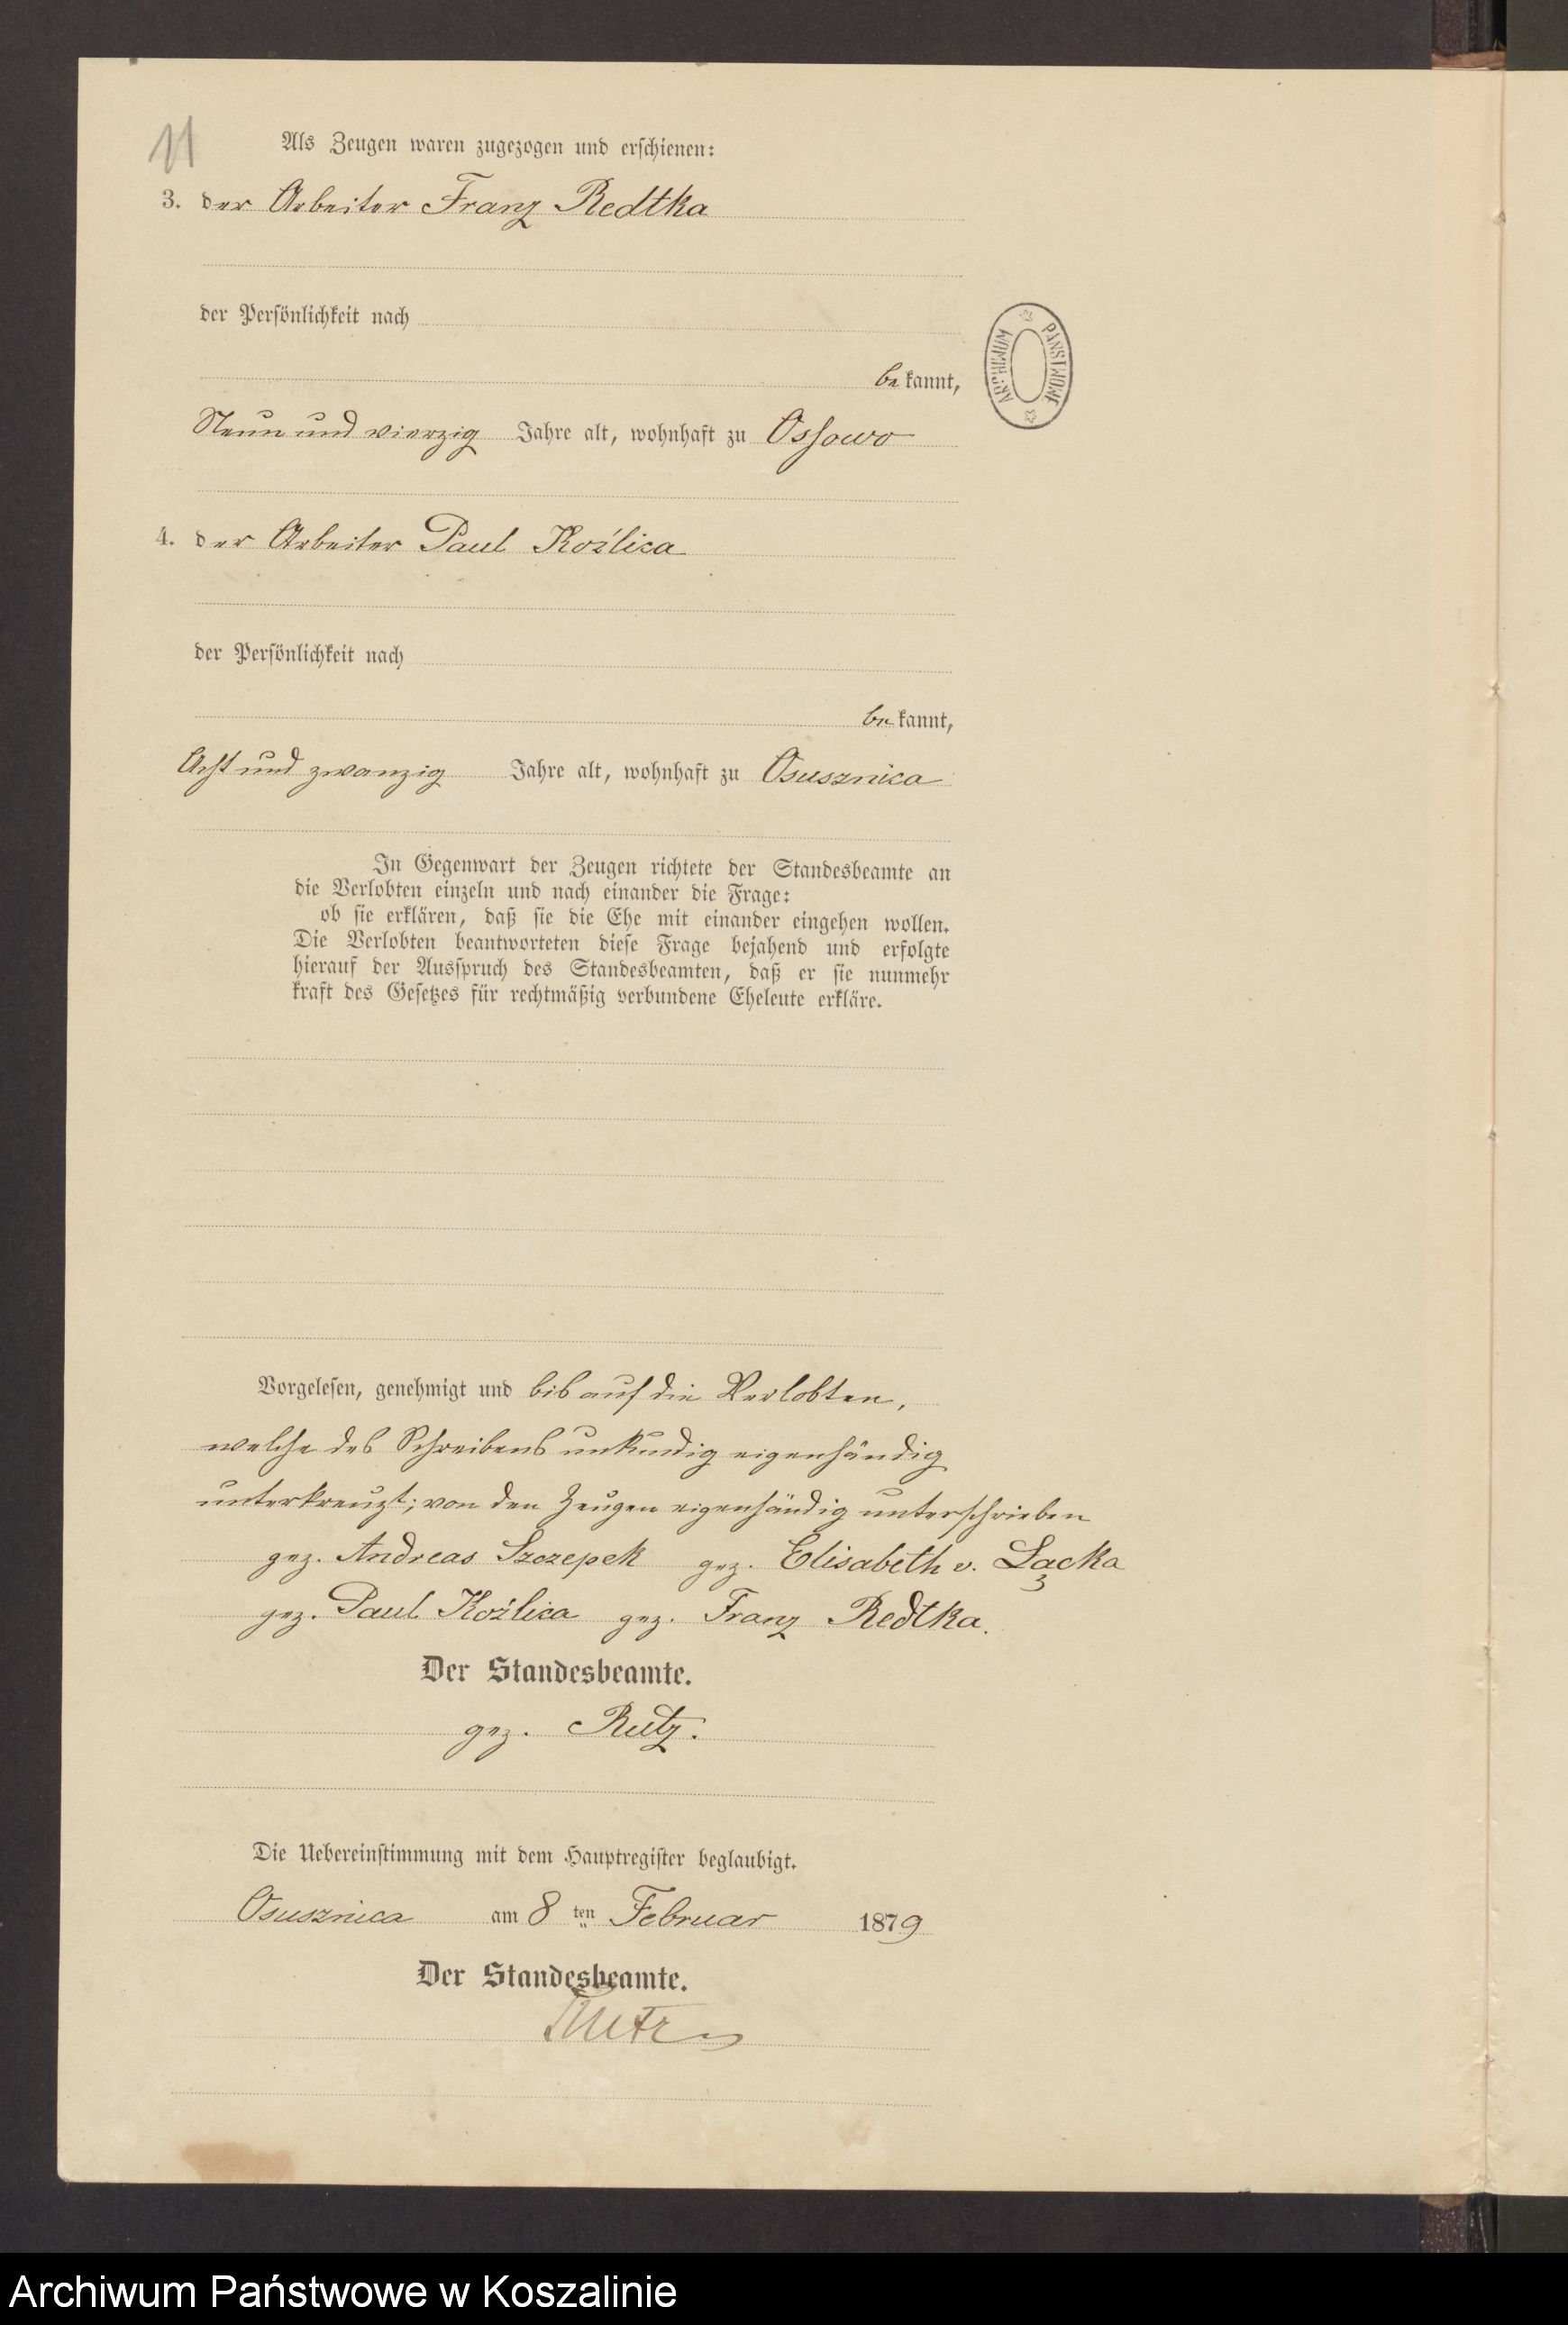 11
Als Zeugen waren zugezogen und erschienen:
3. der Arbeiter Franz Redtka
der Persönlichkeit nach
bekannt,
Neun und vierzig Jahre alt, wohnhaft zu Ossowo
ARCHIWUM PAŃSTWOWE
4. der Arbeiter Paul Koźlica
der Persönlichkeit nach
bekannt,
Acht und zwanzig Jahre alt, wohnhaft zu Osusznica
In Gegenwart der Zeugen richtete der Standesbeamte an
die Verlobten einzeln und nach einander die Frage:
ob sie erklären, daß sie die Ehe mit einander eingehen wollen.
Die Verlobten beantworteten diese Frage bejahend und erfolgte
hierauf der Ausspruch des Standesbeamten, daß er sie nunmehr
kraft des Gesetzes für rechtmäßig verbundene Eheleute erkläre.
Vorgelesen, genehmigt und bis auf die Verlobten,
welche des Schreibens unkundig eigenhändig
unterkreuzt; von den Zeugen eigenhändig unterschrieben
gez. Andreas Szczepek gez. Elisabeth v. Łącka
gez. Paul Koźlica gez. Franz Redtka.
Der Standesbeamte.
gez. Rutz.
Die Uebereinstimmung mit dem Hauptregister beglaubigt.
Osusznica am 8 ten Februar 1879
Der Standesbeamte.
Rutz
Archiwum Państwowe w Koszalinie